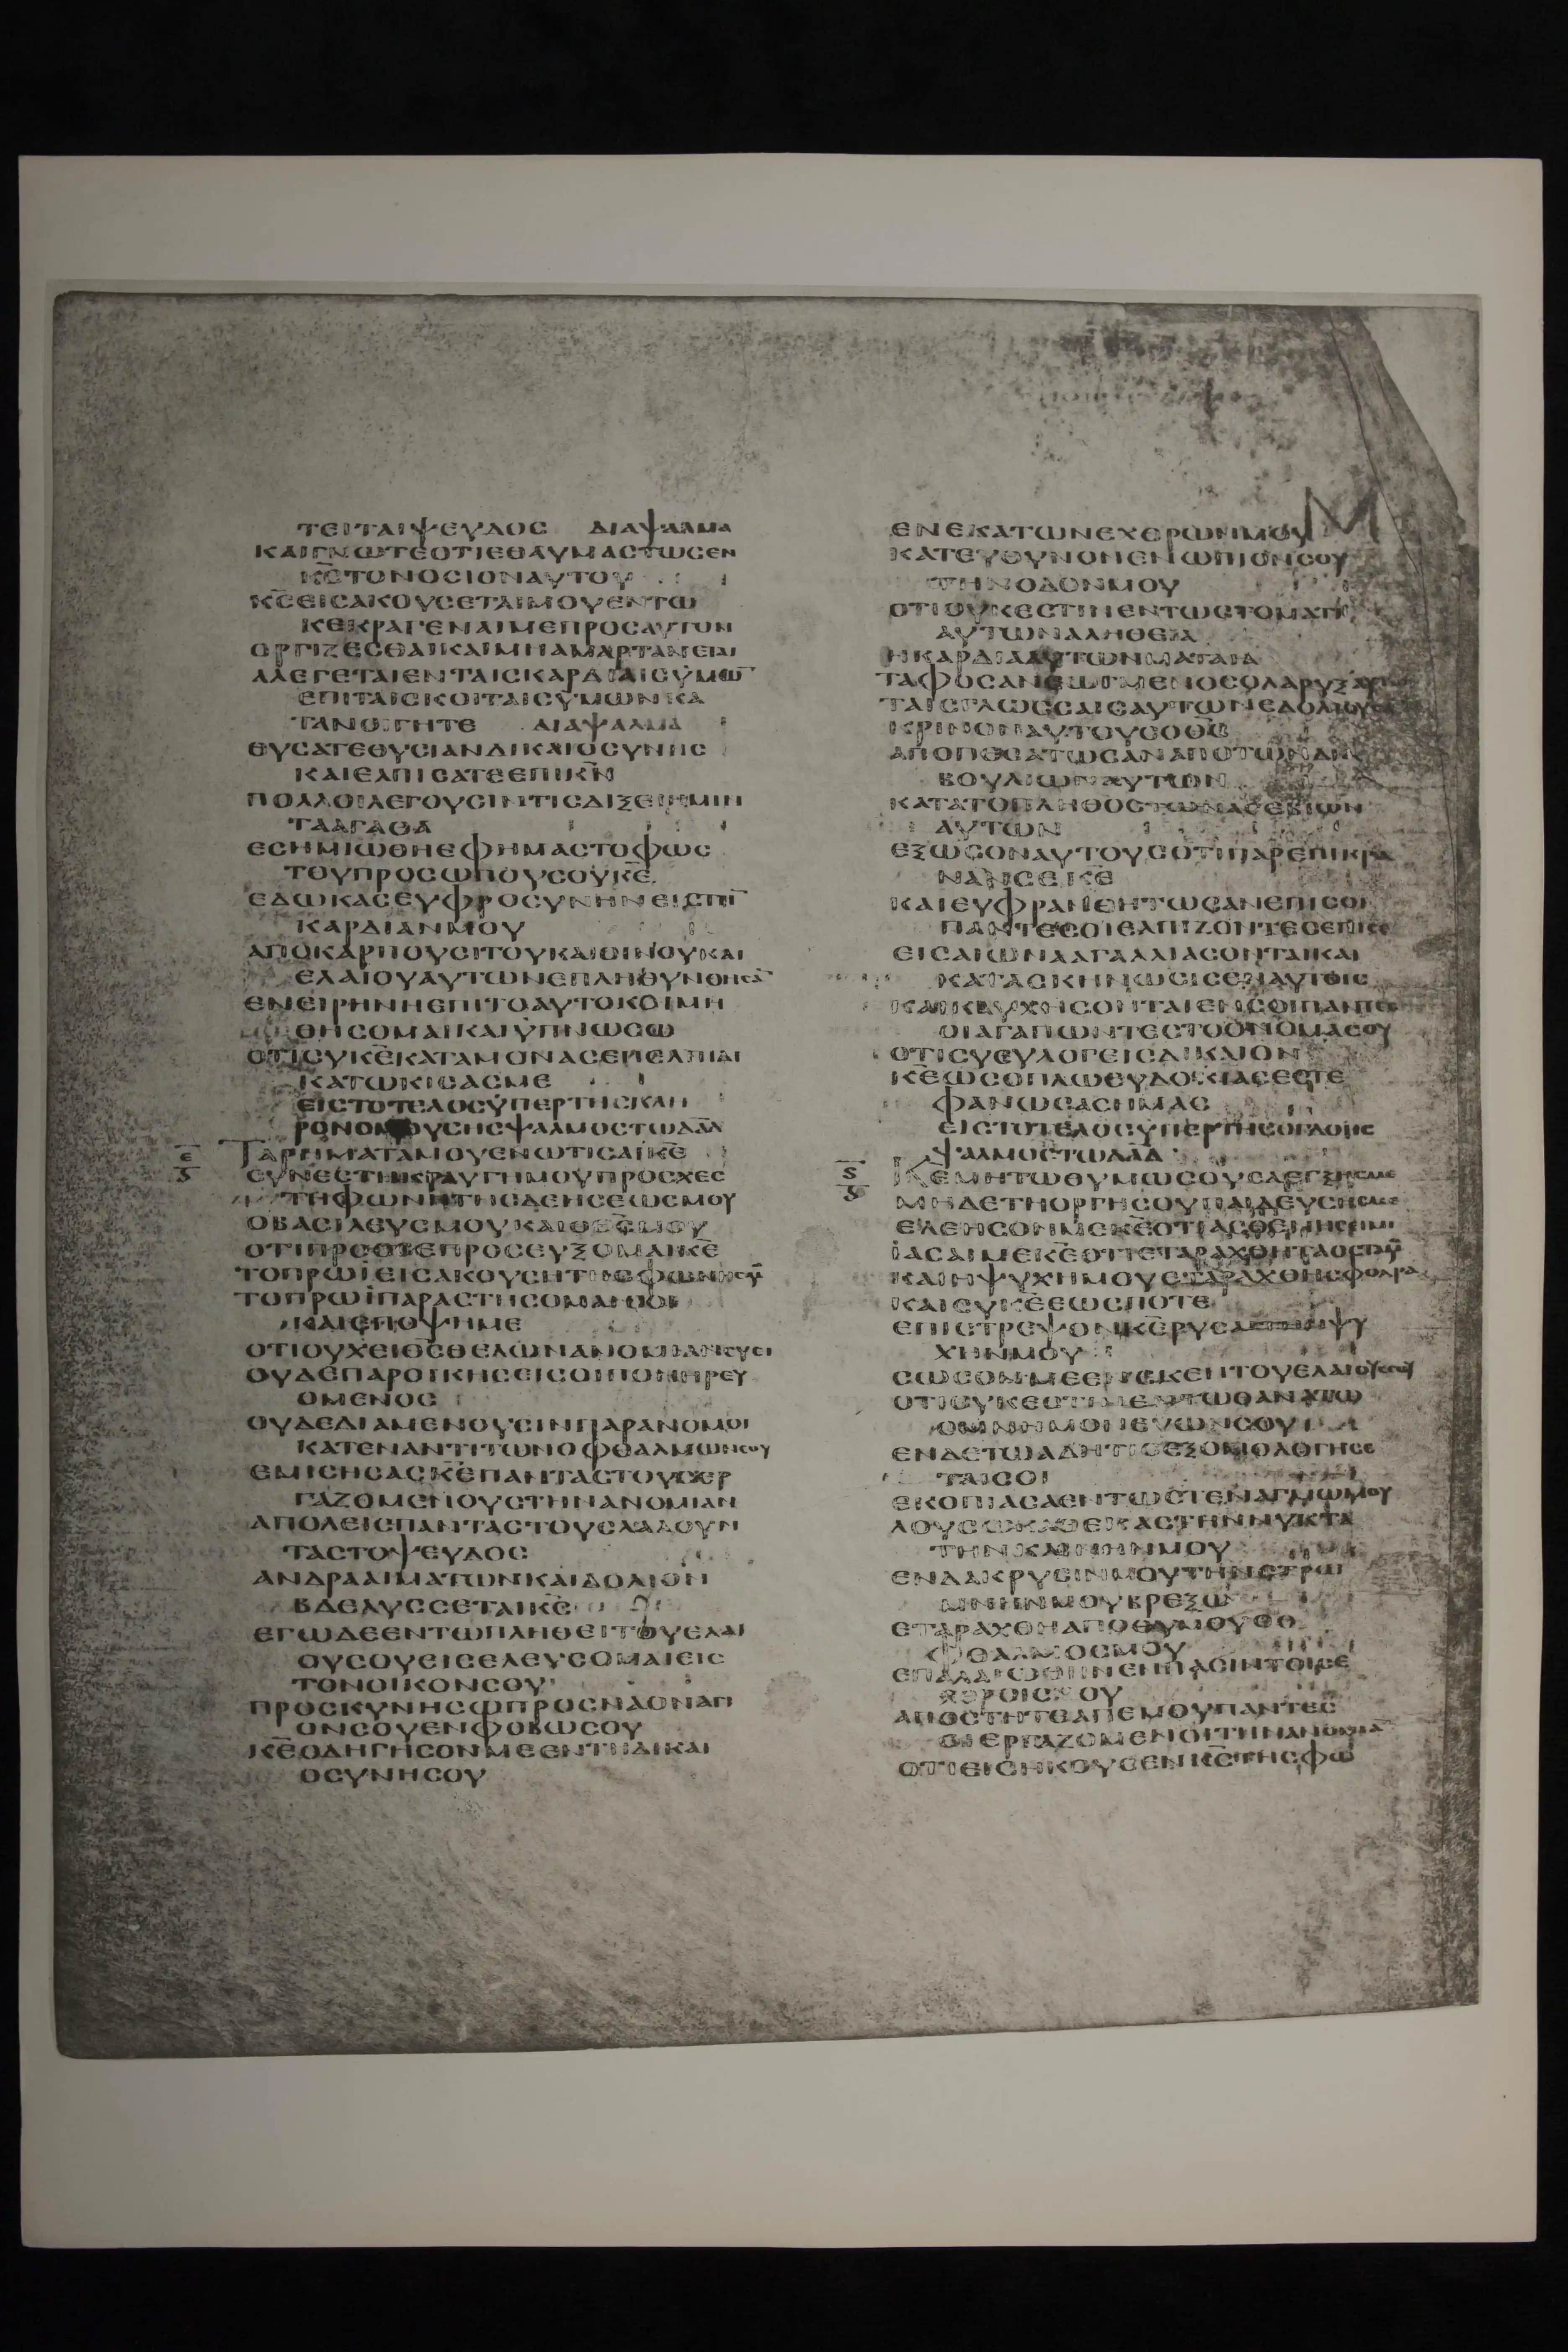 ΤΕΙΤΑΙΨΕΥΔΟC ΔΙΑΨΑΛΜΑ
ΚΑΙΓΝΩΤΕΟΤΙΕΘΑΥΜΑCΤΩCΕΝ
Κ̅C̅ΤΟΝΟCΙΟΝΑΥΤΟΥ
Κ̅C̅ΕΙCΑΚΟΥCΕΤΑΙΜΟΥΕΝΤΩ
ΚΕΚΡΑΓΕΝΑΙΜΕΠΡΟCΑΥΤΟΝ
ΟΡΓΙΖΕCΘΑΙΚΑΙΜΗΑΜΑΡΤΑΝΕΤΑΙ
ΑΛΕΓΕΤΑΙΕΝΤΑΙCΚΑΡΔΙΑΙCΥΜΩ̅
ΕΠΙΤΑΙCΚΟΙΤΑΙCΥΜΩΝΚΑ
ΤΑΝΟΙΓΗΤΕ ΔΙΑΨΑΛΜΑ
ΘΥCΑΤΕΘΥCΙΑΝΔΙΚΑΙΟCΥΝΗC
ΚΑΙΕΛΠΙCΑΤΕΕΠΙΚ̅Ν̅
ΠΟΛΛΟΙΛΕΓΟΥCΙΝΤΙCΔΙΞΕΙΗΜΙΝ
ΤΑΑΓΑΘΑ
ΕCΗΜΙΩΘΗΕΦΗΜΑCΤΟΦΩC
ΤΟΥΠΡΟCΩΠΟΥCΟΥΚ̅Ε̅
ΕΔΩΚΑCΕΥΦΡΟCΥΝΗΝΕΙCΤΗ̅
ΚΑΡΔΙΑΝΜΟΥ
ΑΠΟΚΑΡΠΟΥCΙΤΟΥΚΑΙΟΙΝΟΥΚΑΙ
ΕΛΑΙΟΥΑΥΤΩΝΕΠΛΗΘΥΝΘΗCΑ̅
ΕΝΕΙΡΗΝΗΕΠΙΤΟΑΥΤΟΚΟΙΜΗ
ΘΗCΟΜΑΙΚΑΙΫΠΝΩCΩ
ΟΤΙCΥΚ̅Ε̅ΚΑΤΑΜΟΝΑCΕΠΕΛΠΙΔΙ
ΚΑΤΩΚΙCΑCΜΕ
ΕΙCΤΟΤΕΛΟCΫΠΕΡΤΗCΚΛΗ
ΡΟΝΟΜΟΥCΗCΨΑΛΜΟCΤΩΔΑ̅Δ̅
Ε̅
ΤΑΡΗΜΑΤΑΜΟΥΕΝΩΤΙCΑΙΚ̅Ε̅
CΥΝΕCΤΗΚΡΑΥΓΗΜΟΥΠΡΟCΧΕC
ΤΗΦΩΝΗΤΗCΔΕΗCΕΩCΜΟΥ
ΟΒΑCΙΛΕΥCΜΟΥΚΑΙΟΘ̅C̅ΜΟΥ
ΟΤΙΠΡΟCCΕΠΡΟCΕΥΞΟΜΑΙΚ̅Ε̅
ΤΟΠΡΩΪΕΙCΑΚΟΥCΗΤΗCΦΩΝΗCΜΟΥ
ΤΟΠΡΩΪΠΑΡΑCΤΗCΟΜΑΙCΟΙ
ΚΑΙΕΠΟΨΗΜΕ
ΟΤΙΟΥΧΕΙΘ̅C̅ΘΕΛΩΝΑΝΟΜΙΑΝCΥΕΙ
ΟΥΔΕΠΑΡΟΙΚΗCΕΙCΟΙΠΟΝΗΡΕΥ
ΟΜΕΝΟC
ΟΥΔΕΔΙΑΜΕΝΟΥCΙΝΠΑΡΑΝΟΜΟΙ
ΚΑΤΕΝΑΝΤΙΤΩΝΟΦΘΑΛΜΩΝCΟΥ
ΕΜΙCΗCΑCΚ̅Ε̅ΠΑΝΤΑCΤΟΥCΕΡ
ΓΑΖΟΜΕΝΟΥCΤΗΝΑΝΟΜΙΑΝ
ΑΠΟΛΕΙCΠΑΝΤΑCΤΟΥCΛΑΛΟΥΝ
ΤΑCΤΟΨΕΥΔΟC
ΑΝΔΡΑΑΙΜΑΤΩΝΚΑΙΔΟΛΙΟΝ
ΒΔΕΛΥCCΕΤΑΙΚ̅C̅
ΕΓΩΔΕΕΝΤΩΠΛΗΘΕΙΤΟΥΕΛΑΙ
ΟΥCΟΥΕΙCΕΛΕΥCΟΜΑΙΕΙC
ΤΟΝΟΙΚΟΝCΟΥ
ΠΡΟCΚΥΝΗCΩΠΡΟCΝΑΟΝΑΓΙ
ΟΝCΟΥΕΝΦΟΒΩCΟΥ
Κ̅Ε̅ΟΔΗΓΗCΟΝΜΕΕΝΤΗΔΙΚΑΙ
ΟCΥΝΗCΟΥ
ΕΝΕΚΑΤΩΝΕΧΘΡΩΝΜΟΥ
ΚΑΤΕΥΘΥΝΟΝΕΝΩΠΙΟΝCΟΥ
ΤΗΝΟΔΟΝΜΟΥ
ΟΤΙΟΥΚΕCΤΙΝΕΝΤΩCΤΟΜΑΤΙ
ΑΥΤΩΝΑΛΗΘΕΙΑ
ΗΚΑΡΔΙΑΑΥΤΩΝΜΑΤΑΙΑ
ΤΑΦΟCΑΝΕΩΓΜΕΝΟCΟΛΑΡΥΞΑΥ
ΤΑΙCΓΛΩCCΑΙCΑΥΤΩΝΕΔΟΛΙΟΥ
ΚΡΙΝΟΝΑΥΤΟΥCΟΘ̅C̅
ΑΠΟΠΕCΑΤΩCΑΝΑΠΟΤΩΝΔΙΑ
ΒΟΥΛΙΩΝΑΥΤΩΝ
ΚΑΤΑΤΟΠΛΗΘΟCΤΩΝΑCΕΒΙΩΝ
ΑΥΤΩΝ
ΕΞΩCΟΝΑΥΤΟΥCΟΤΙΠΑΡΕΠΙΚΡΑ
ΝΑΝCΕΚ̅Ε̅
ΚΑΙΕΥΦΡΑΝΘΗΤΩCΑΝΕΠΙCΟΙ
ΠΑΝΤΕCΟΙΕΛΠΙΖΟΝΤΕCΕΠΙCΕ
ΕΙCΑΙΩΝΑΑΓΑΛΛΙΑCΟΝΤΑΙΚΑΙ
ΚΑΤΑCΚΗΝΩCΙCΕΝΑΥΤΟΙC
ΚΑΙΚΑΥΧΗCΟΝΤΑΙΕΝCΟΙΠΑΝΤΕC
ΟΙΑΓΑΠΩΝΤΕCΤΟΟΝΟΜΑCΟΥ
ΟΤΙCΥΕΥΛΟΓΕΙCΔΙΚΑΙΟΝ
Κ̅Ε̅ΩCΟΠΛΩΕΥΔΟΚΙΑCΕCΤΕ
ΦΑΝΩCΑCΗΜΑC
ΕΙCΤΟΤΕΛΟCΫΠΕΡΤΗCΟΓΔΟΗC
ΨΑΛΜΟCΤΩΔΑ̅Δ̅
Ϛ̅
Κ̅Ε̅ΜΗΤΩΘΥΜΩCΟΥΕΛΕΓΞΗCΜΕ
ΜΗΔΕΤΗΟΡΓΗCΟΥΠΑΙΔΕΥCΗCΜΕ
ΕΛΕΗCΟΝΜΕΚ̅Ε̅ΟΤΙΑCΘΕΝΗCΕΙΜΙ
ΪΑCΑΙΜΕΚ̅Ε̅ΟΤΙΕΤΑΡΑΧΘΗΤΑΟCΤΑΜΟΥ
ΚΑΙΗΨΥΧΗΜΟΥΕΤΑΡΑΧΘΗCΦΟΔΡΑ
ΚΑΙCΥΚ̅Ε̅ΕΩCΠΟΤΕ
ΕΠΙCΤΡΕΨΟΝΚ̅Ε̅ΡΥCΑΙΤΗΝΨΥ
ΧΗΝΜΟΥ
CΩCΟΝΜΕΕΝΕΚΕΝΤΟΥΕΛΑΙΟΥCCΟΥ
ΟΤΙΟΥΚΕCΤΙΝΕΝΤΩΘΑΝΑΤΩ
ΟΜΝΗΜΟΝΕΥΩΝCΟΥ
ΕΝΔΕΤΩΑΔΗΤΙCΕΞΟΜΟΛΟΓΗCΕ
ΤΑΙCΟΙ
ΕΚΟΠΙΑCΑΕΝΤΩCΤΕΝΑΓΜΩΜΟΥ
ΛΟΥCΩΚΑΘΕΚΑCΤΗΝΝΥΚΤΑ
ΤΗΝΚΛΙΝΗΝΜΟΥ
ΕΝΔΑΚΡΥCΙΝΜΟΥΤΗΝCΤΡΩ
ΜΝΗΝΜΟΥΒΡΕΞΩ
ΕΤΑΡΑΧΘΗΑΠΟΘΥΜΟΥΟΟ
ΦΘΑΛΜΟCΜΟΥ
ΕΠΑΛΑΙΩΘΗΝΕΝΠΑCΙΝΤΟΙCΕ
ΧΘΡΟΙCΜΟΥ
ΑΠΟCΤΗΤΕΑΠΕΜΟΥΠΑΝΤΕC
ΟΙΕΡΓΑΖΟΜΕΝΟΙΤΗΝΑΝΟΜΙΑ̅
ΟΤΙΕΙCΗΚΟΥCΕΝΚ̅C̅ΤΗCΦΩ